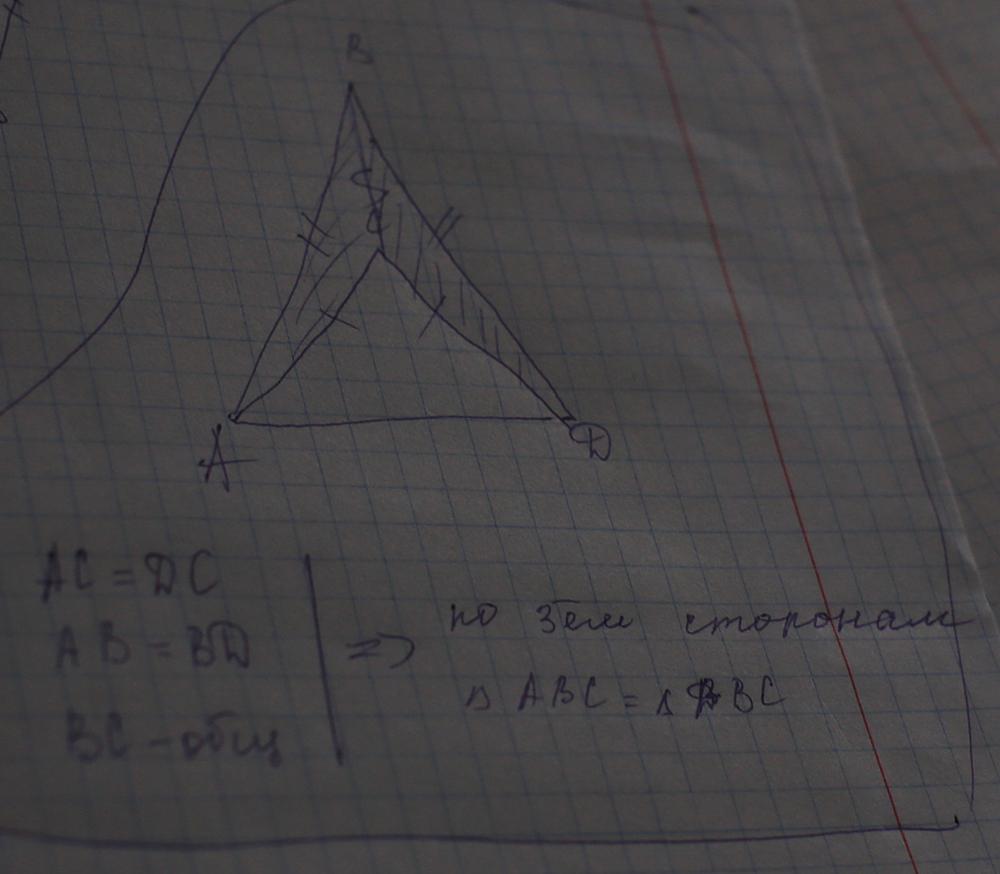 B
C
A
D
AC = DC
AB = BD
BC - общ
=> по 3ём сторонам
Δ ABC = Δ DBC